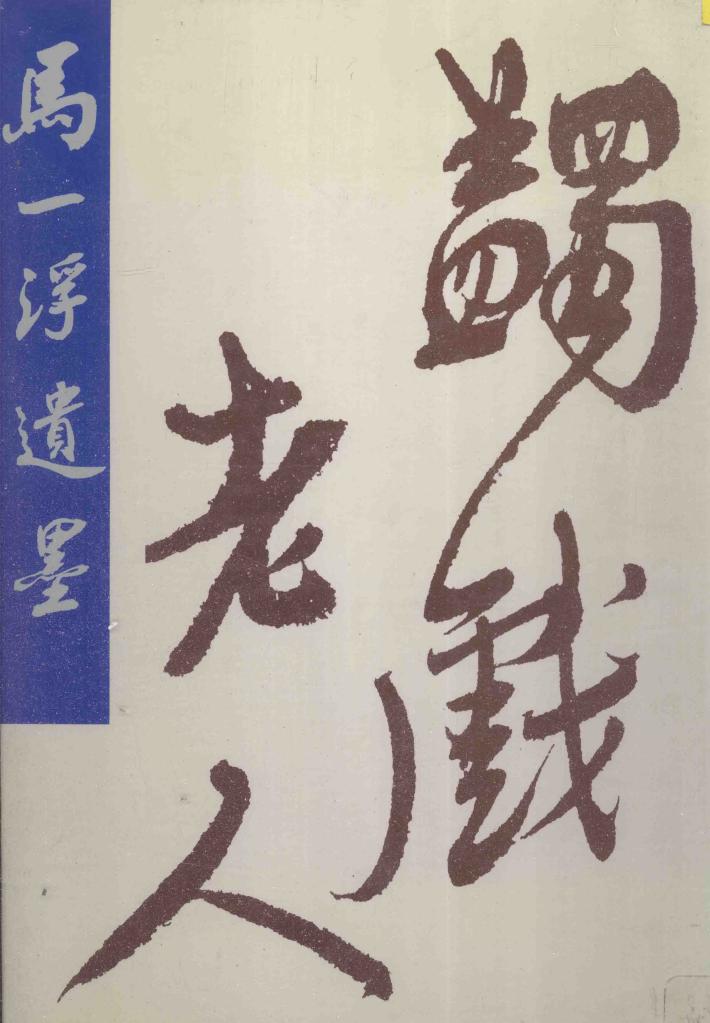 蠲戲
老人
馬一浮遺墨